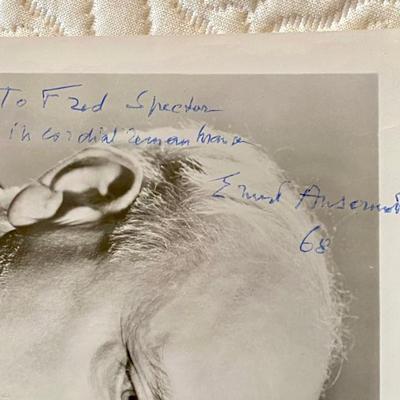 To Fred Spector
in cordial remembrance
Ernest Ansermet
68